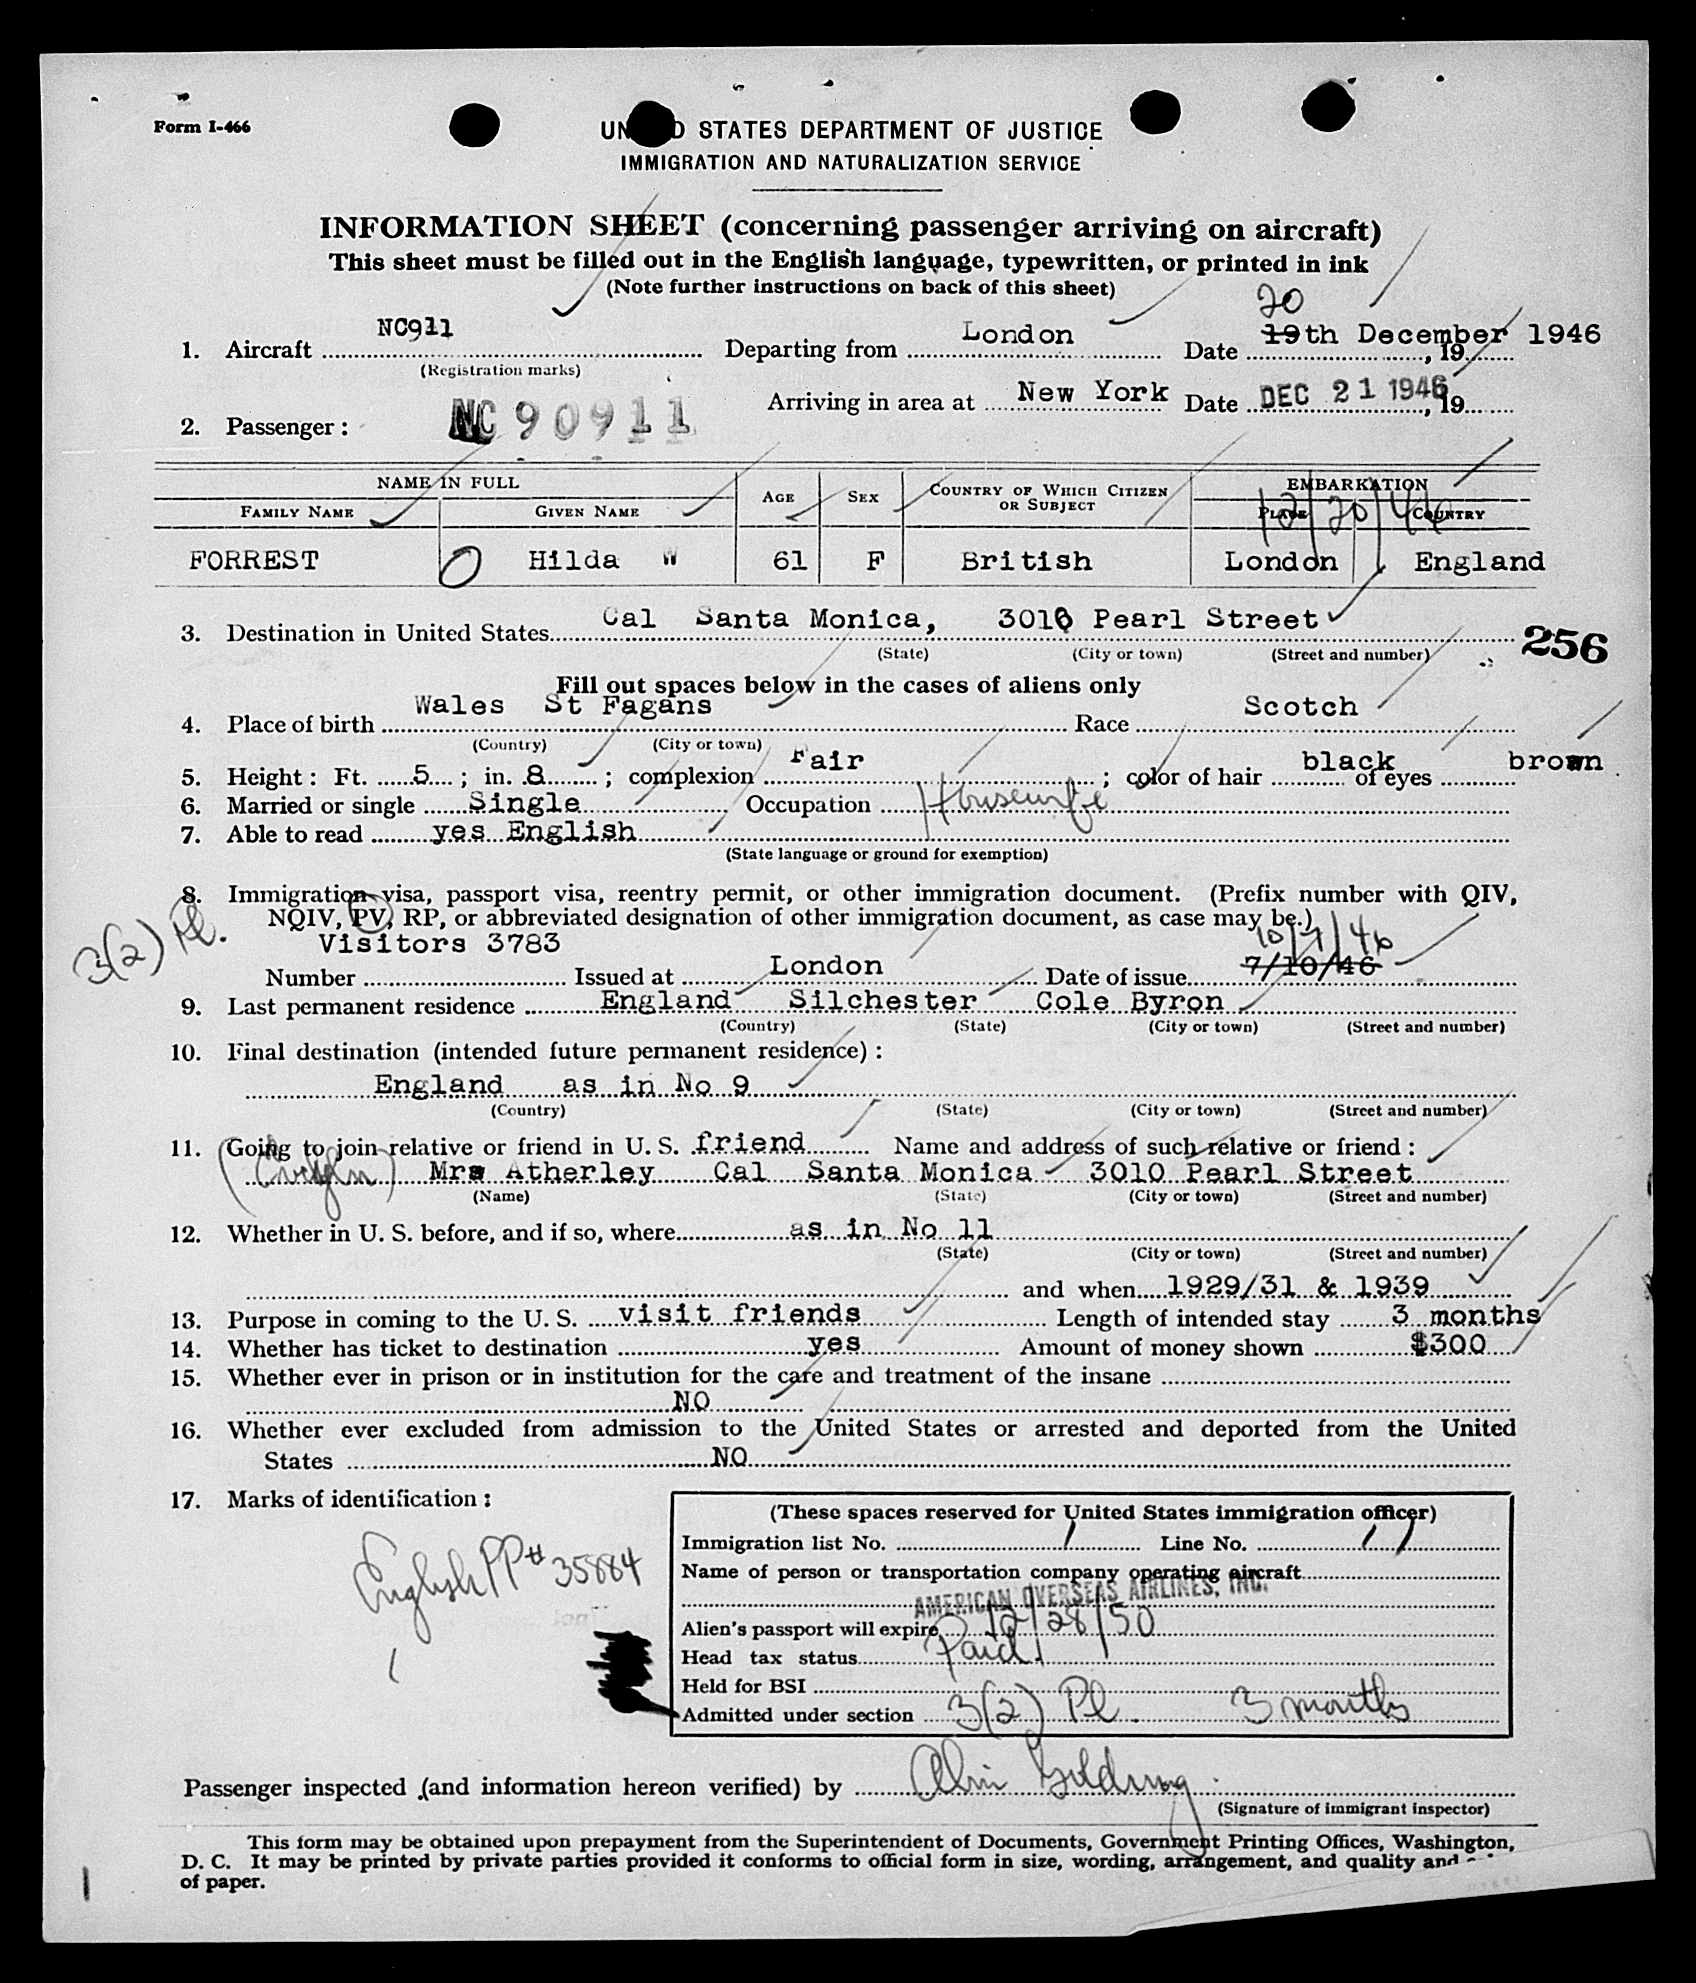 Form I-466
UNITED STATES DEPARTMENT OF JUSTICE
IMMIGRATION AND NATURALIZATION SERVICE
INFORMATION SHEET (concerning passenger arriving on aircraft)
This sheet must be filled out in the English language, typewritten, or printed in ink
(Note further instructions on back of this sheet)
20
1. Aircraft NC911 Departing from London Date 19th December 1946, 19
(Registration marks)
Arriving in area at New York Date DEC 21 1946, 19
2. Passenger: NC 90911
NAME IN FULL AGE SEX COUNTRY OF WHICH CITIZEN OR SUBJECT EMBARKATION
FAMILY NAME GIVEN NAME PLACE COUNTRY
12/20/46
FORREST Hilda W 61 F British London England
3. Destination in United States Cal Santa Monica, 3010 Pearl Street
(State) (City or town) (Street and number)
256
Fill out spaces below in the cases of aliens only
4. Place of birth Wales St Fagans Race Scotch
(Country) (City or town)
5. Height: Ft. 5; in. 8; complexion Fair; color of hair black of eyes brown
6. Married or single Single Occupation Housewife
7. Able to read yes English
(State language or ground for exemption)
8. Immigration visa, passport visa, reentry permit, or other immigration document. (Prefix number with QIV,
NQIV, PV, RP, or abbreviated designation of other immigration document, as case may be.)
3(2) Pl.
Visitors 3783 10/7/46
Number Issued at London Date of issue 7/10/46
9. Last permanent residence England Silchester Cole Byron
(Country) (State) (City or town) (Street and number)
10. Final destination (intended future permanent residence):
England as in No 9
(Country) (State) (City or town) (Street and number)
11. Going to join relative or friend in U. S. friend Name and address of such relative or friend:
(Evelyn) Mrs Atherley Cal Santa Monica 3010 Pearl Street
(Name) (State) (City or town) (Street and number)
12. Whether in U. S. before, and if so, where as in No 11
(State) (City or town) (Street and number)
and when 1929/31 & 1939
13. Purpose in coming to the U. S. visit friends Length of intended stay 3 months
14. Whether has ticket to destination yes Amount of money shown $300
15. Whether ever in prison or in institution for the care and treatment of the insane
NO
16. Whether ever excluded from admission to the United States or arrested and deported from the United
States NO
17. Marks of identification:
English PP# 35884
(These spaces reserved for United States immigration officer)
Immigration list No. 1 Line No. 17
Name of person or transportation company operating aircraft
AMERICAN OVERSEAS AIRLINES, INC.
Alien's passport will expire 12/28/50
Head tax status Paid.
Held for BSI
Admitted under section 3(2) Pl. 3 months
Passenger inspected (and information hereon verified) by Golding
(Signature of immigrant inspector)
This form may be obtained upon prepayment from the Superintendent of Documents, Government Printing Offices, Washington,
D. C. It may be printed by private parties provided it conforms to official form in size, wording, arrangement, and quality and
of paper.